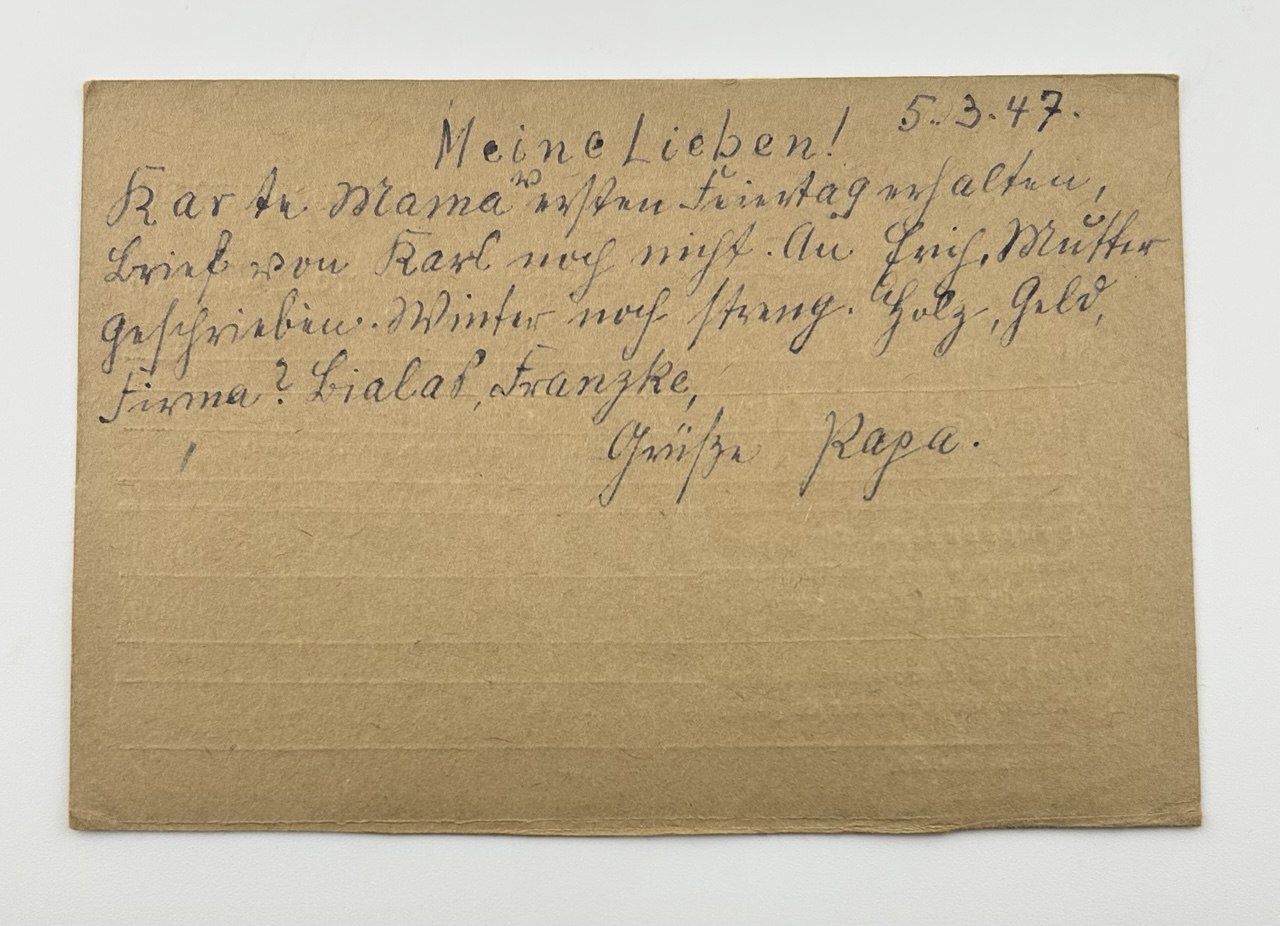 5.3.47.
Meine Lieben!
Karte Mama v ersten Feiertag erhalten,
Brief von Karl noch nicht. An Erich, Mutter
geschrieben. Winter noch streng. Holz, Geld,
Firma? Bialas, Franzke,
Grüße Papa.